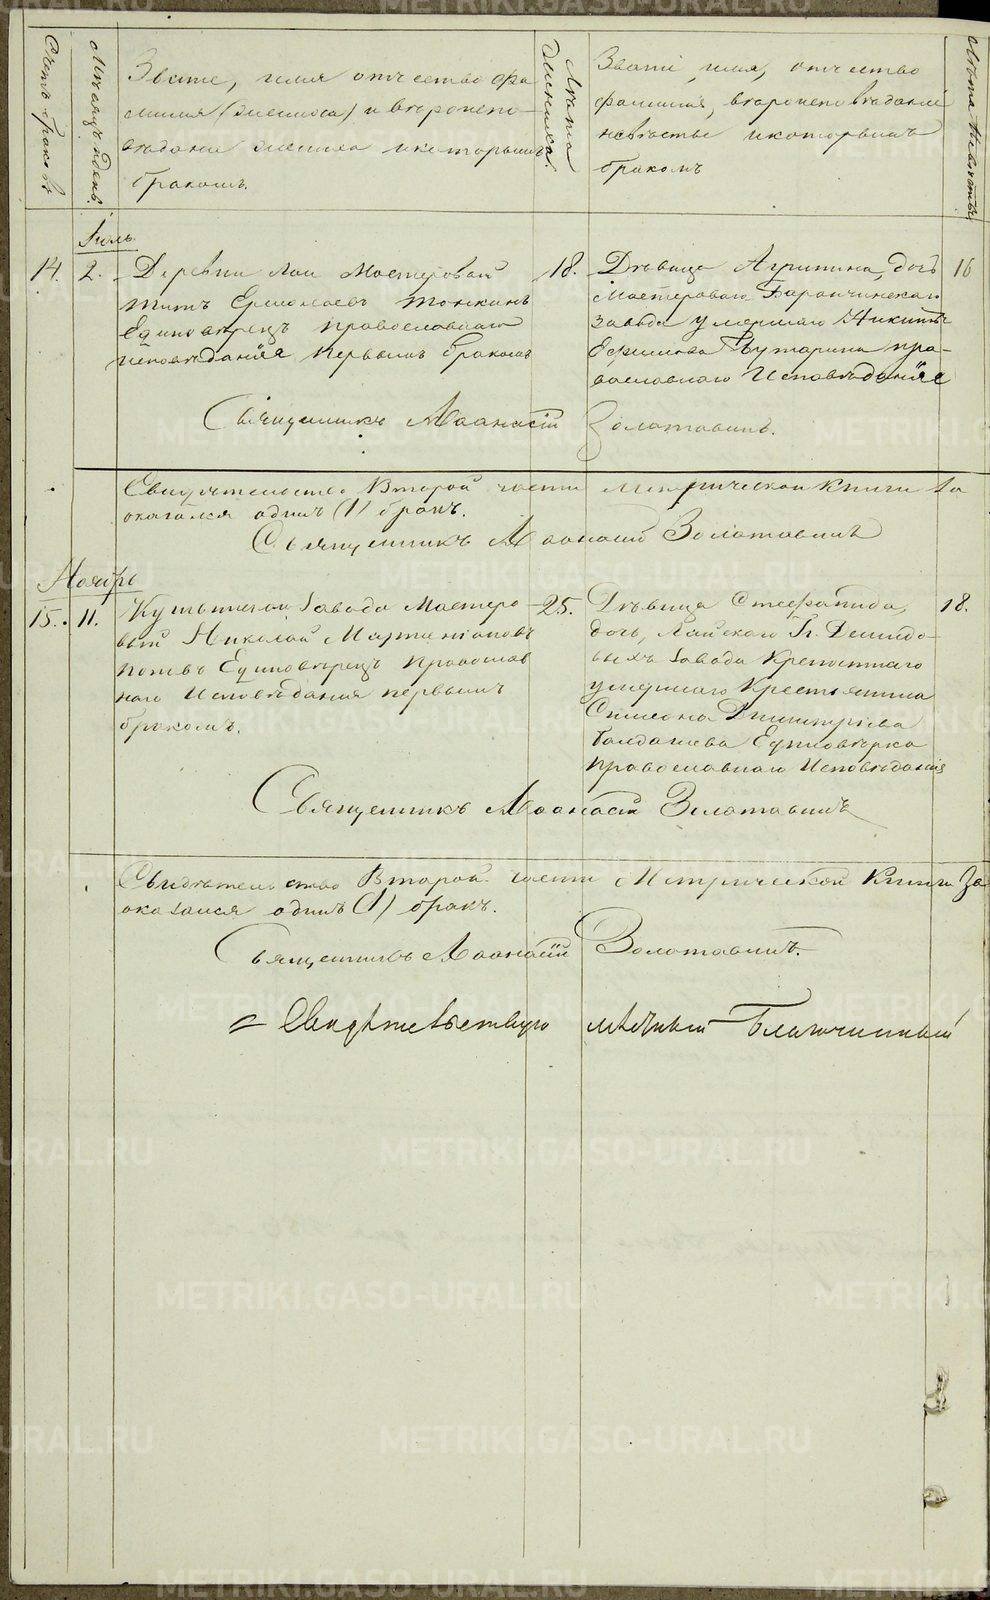 Счетъ браковъ
Мѣсяцъ и день.
Званіе, имя отчество фа
милія (жениха) и вѣроиспо-
вѣданіе жениха и которымъ
бракомъ.
Лѣта жениха.
Званіе, имя, отчество
фамилія, вѣроисповѣданіе
невѣсты и которымъ
бракомъ
Лѣта невѣсты
Іюль
14. 2. Деревни Лаи Мастеровой
Титъ Ермолаевъ Тонкинъ
Единовѣрецъ православнаго
исповѣданія первымъ бракомъ
18.
Дѣвица Агрипина, дочь
Мастероваго Баранчинскаго
завода умершаго Никиты
Ефимова пра-
вославнаго Исповѣданія
16
Священникъ Аѳанасій Золотавинъ.
Свидѣтельство Второй части метрической книги за
оказался одинъ (1) бракъ.
Священникъ Аѳанасій Золотавинъ
Ноябрь
15. 11. Кушвинскаго завода Мастеро
вый Николай Мартиніановъ
Единовѣрецъ Православ
наго Исповѣданія первымъ
бракомъ.
25.
Дѣвица Стефанида,
дочь, Лайскаго Гг. Демидо-
выхъ завода крепостнаго
умершаго Крестьянина
Симеона Димитріева
Единовѣрка
православнаго Исповѣданія
18.
Священникъ Аѳанасій Золотавинъ
Свидѣтельство Второй части Метрической Книги За
оказался одинъ (1) бракъ.
Священникъ Аѳанасій Золотавинъ.
Свидѣтельствую мѣстный Благочинный
METRIKI.GASO-URAL.RU